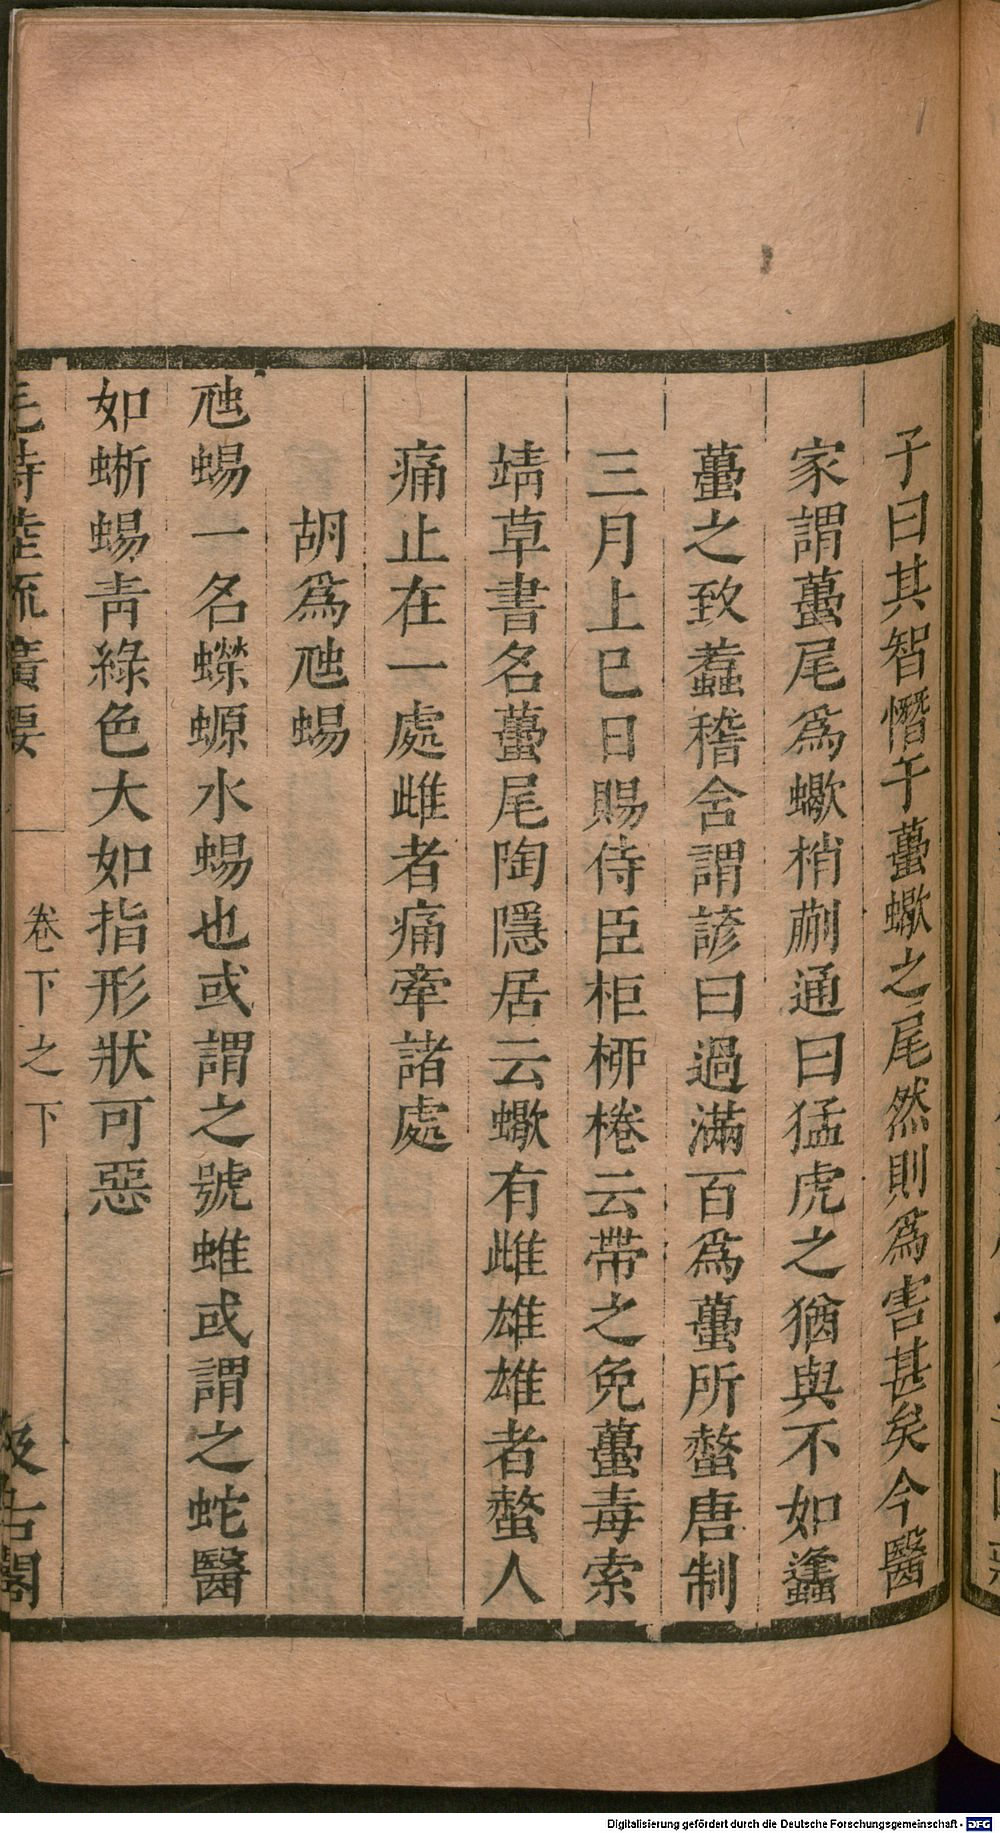 子曰其智憯於蠆蠍之尾然則爲害甚矣今醫
家謂蠆尾爲蠍梢蒯通曰猛虎之猶與不如蠭
蠆之致蠚稽含謂諺曰過滿百爲蠆所螫唐制
三月上巳日賜侍臣柜桺棬云帶之免蠆毒索
靖草書名蠆尾陶隱居云蠍有雌雄雄者螫人
痛止在一處雌者痛牽諸處
胡爲虺蜴
虺蜴一名蠑螈水蜴也或謂之號蜼或謂之蛇醫
如蜥蜴靑綠色大如指形狀可惡
毛詩陸疏廣要
卷下之下
汲古閣
Digitalisierung gefördert durch die Deutsche Forschungsgemeinschaft - DFG